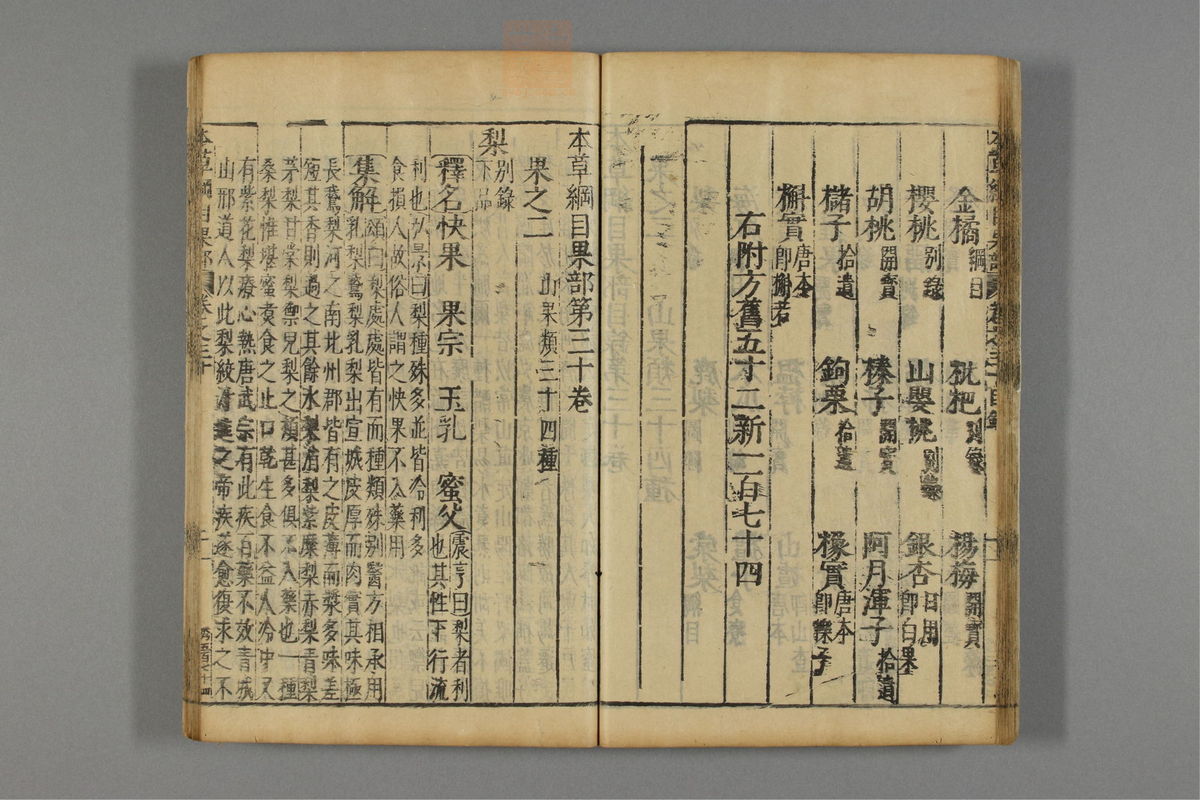 本草綱目果部 目錄
金橘綱目 枇杷別錄 楊梅開寶
櫻桃別錄 山嬰桃別錄 銀杏日用即白果
胡桃開寶 榛子開寶 阿月渾子拾遺
櫧子拾遺 鉤栗拾遺 橡實唐本即櫟子
槲實唐本即槲若
右附方舊五十二新一百七十四
本草綱目果部第三十卷
果之二 山果類三十四種
梨別錄下品
釋名快果 果宗 玉乳 蜜父震亨曰梨者利也其性下行流
利也弘景曰梨種殊多並皆冷利多
食損人故俗人謂之快果不入藥用
集解頌曰梨處處皆有而種類殊別醫方相承用
乳梨鵞梨乳梨出宣城皮厚而肉實其味極
長鵞梨河之南北州郡皆有之皮薄而漿多味差
短其香則過之其餘水梨消梨紫糜梨赤梨青梨
茅梨甘棠梨禦兒梨之類甚多俱不入藥也一種
桑梨惟堪蜜煑食之止口乾生食不益人冷中又
有紫花梨療心熱唐武宗有此疾百藥不效青城
山邢道人以此梨絞汁進之帝疾遂愈復求之不
本草綱目果部 卷之三十